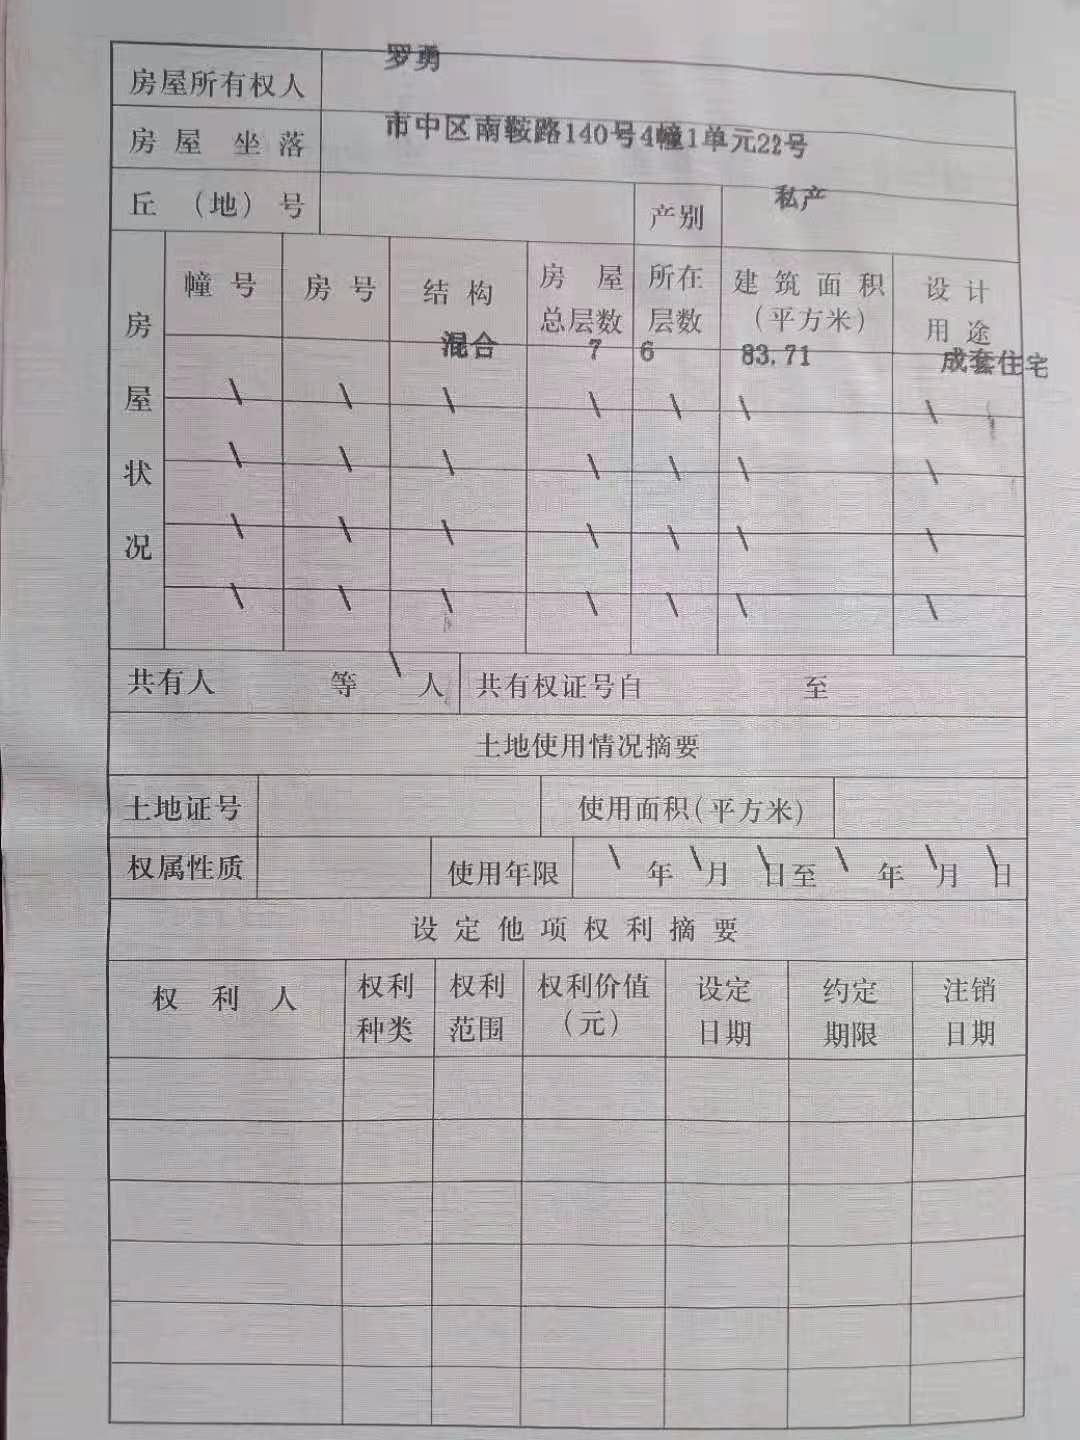 房屋所有权人 罗勇
房屋 坐落 市中区南鞍路140号4幢1单元22号
丘 （地）号 产别 私产
房屋状况
幢号 房号 结构 房屋总层数 所在层数 建筑面积（平方米） 设计用途
混合 7 6 83.71 成套住宅
\ \ \ \ \ \ \
\ \ \ \ \ \ \
\ \ \ \ \ \ \
\ \ \ \ \ \ \
共有人 等 \ 人 共有权证号自 至
土地使用情况摘要
土地证号 使用面积(平方米)
权属性质 使用年限 \ 年 \ 月 \ 日至 \ 年 \ 月 \ 日
设定他项权利摘要
权利人 权利种类 权利范围 权利价值（元） 设定日期 约定期限 注销日期